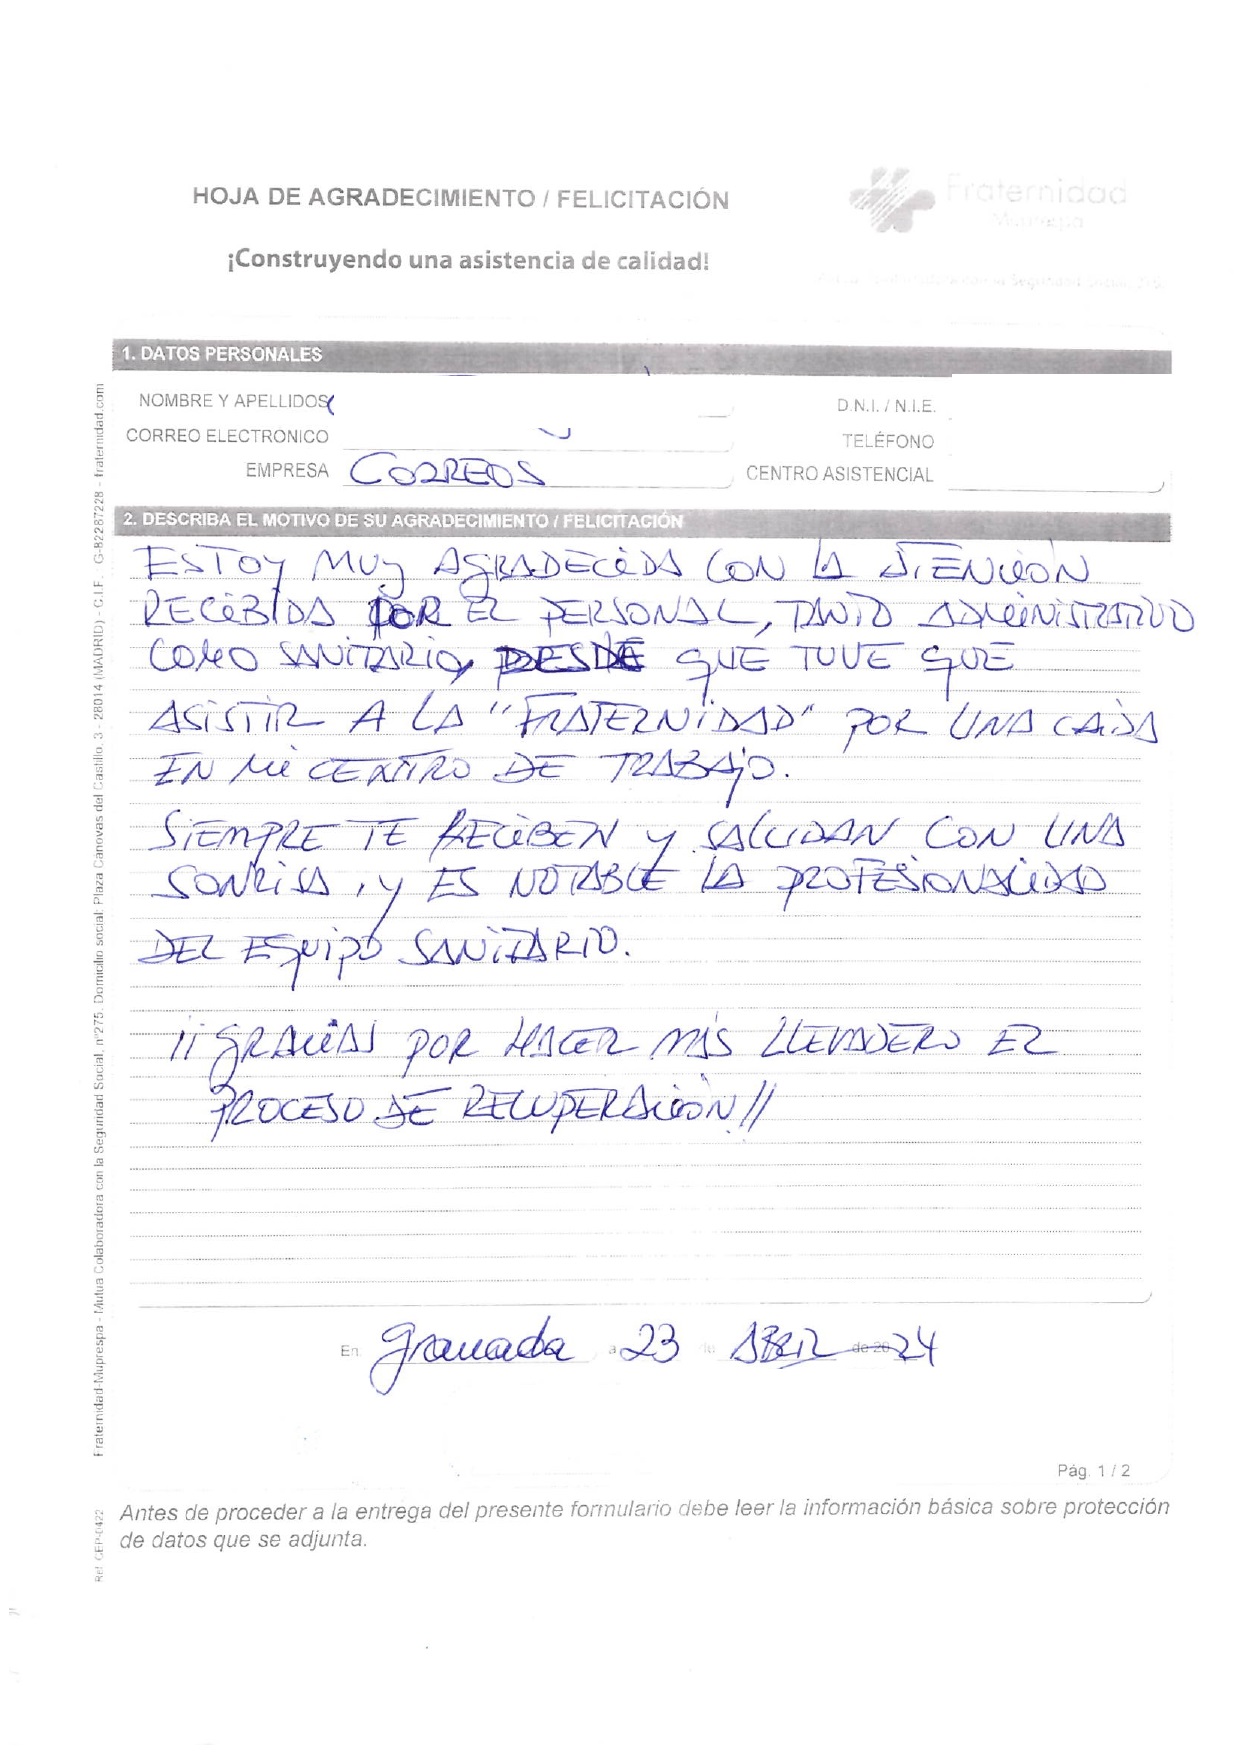 HOJA DE AGRADECIMIENTO / FELICITACIÓN
Fraternidad
Muprespa
¡Construyendo una asistencia de calidad!
1. DATOS PERSONALES
NOMBRE Y APELLIDOS
D.N.I. / N.I.E.
CORREO ELECTRONICO
TELÉFONO
EMPRESA CORREOS
CENTRO ASISTENCIAL
2. DESCRIBA EL MOTIVO DE SU AGRADECIMIENTO / FELICITACIÓN
ESTOY MUY AGRADECIDA CON LA ATENCIÓN
RECIBIDA POR EL PERSONAL, TANTO ADMINISTRATIVO
COMO SANITARIO, DESDE QUE TUVE QUE
ASISTIR A LA "FRATERNIDAD" POR UNA CAIDA
EN MI CENTRO DE TRABAJO.
SIEMPRE TE RECIBEN Y SALUDAN CON UNA
SONRISA, Y ES NOTABLE LA PROFESIONALIDAD
DEL EQUIPO SANITARIO.
¡¡GRACIAS POR HACER MÁS LLEVADERO EL
PROCESO DE RECUPERACIÓN!!
En Granada a 23 de ABRIL de 20 24
Pág. 1 / 2
Antes de proceder a la entrega del presente formulario debe leer la información básica sobre protección
de datos que se adjunta.
Fraternidad-Muprespa - Mutua Colaboradora con la Seguridad Social, nº275. Domicilio social: Plaza Cánovas del Castillo, 3 - 28014 (MADRID) - C.I.F. G-82287228 - fraternidad.com
Ref. CEP-0422